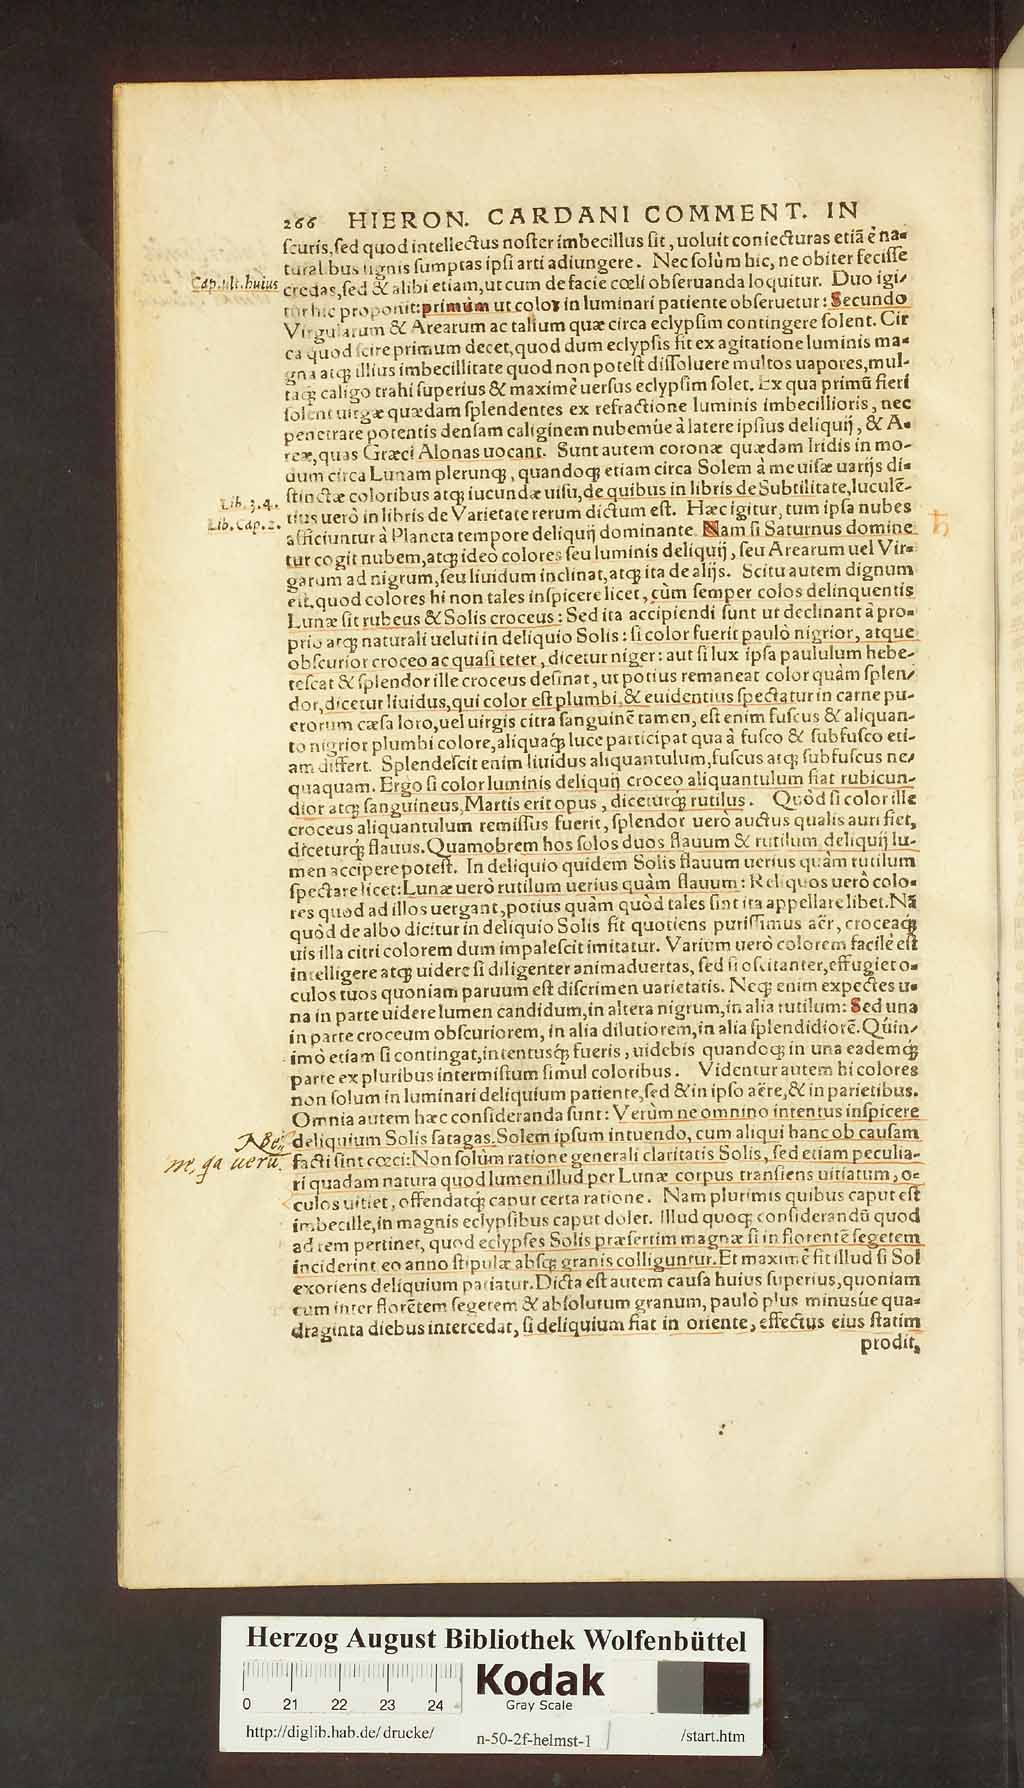 266 HIERON. CARDANI COMMENT. IN
ſcuris, ſed quod intellectus noſter imbecillus ſit, uoluit coniecturas etiā è na-
tural bus ſignis ſumptas ipſi arti adiungere. Nec ſolùm hic, ne obiter feciſſe
Cap. ult. huius
credas, ſed & alibi etiam, ut cum de facie cœli obſeruanda loquitur. Duo igi-
tur hic proponit: primùm ut color in luminari patiente obſeruetur: Secundo
Virgularum & Arearum ac talium quæ circa eclypſim contingere ſolent. Cir
ca quod ſcire primum decet, quod dum eclypſis fit ex agitatione luminis ma-
gna atq; illius imbecillitate quod non poteſt diſſoluere multos uapores, mul-
taq; caligo trahi ſuperius & maximè uerſus eclypſim ſolet. Ex qua primū fieri
ſolent uirgæ quædam ſplendentes ex refractione luminis imbecillioris, nec
penetrare potentis denſam caliginem nubemùe à latere ipſius deliquij, & A-
reæ, quas Græci Alonas uocant. Sunt autem coronæ quædam Iridis in mo-
dum circa Lunam plerunq;, quandoq; etiam circa Solem à me uiſæ uarijs di-
ſtinctæ coloribus atq; iucundæ uiſu, de quibus in libris de Subtilitate, luculē-
Lib. 3. 4.
tius uerò in libris de Varietate rerum dictum eſt. Hæc igitur, tum ipſa nubes
Lib. Cap. 2.
afficiuntur à Planeta tempore deliquij dominante. Nam ſi Saturnus domine
♄
tur cogit nubem, atq; ideò colores ſeu luminis deliquij, ſeu Arearum uel Vir-
garum ad nigrum, ſeu liuidum inclinat, atq; ita de alijs. Scitu autem dignum
eſt, quod colores hi non tales inſpicere licet, cùm ſemper colos delinquentis
Lunæ ſit rubeus & Solis croceus: Sed ita accipiendi ſunt ut declinant à pro-
prio atq; naturali ueluti in deliquio Solis: ſi color fuerit paulò nigrior, atque
obſcurior croceo ac quaſi teter, dicetur niger: aut ſi lux ipſa paululum hebe-
teſcat & ſplendor ille croceus deſinat, ut potius remaneat color quàm ſplen-
dor, dicetur liuidus, qui color eſt plumbi, & euidentius ſpectatur in carne pu-
erorum cæſa loro, uel uirgis citra ſanguinē tamen, eſt enim fuſcus & aliquan-
to nigrior plumbi colore, aliquaq; luce participat qua à fuſco & ſubfuſco eti-
am differt. Splendeſcit enim liuidus aliquantulum, fuſcus atq; ſubfuſcus ne-
quaquam. Ergo ſi color luminis deliquij croceo aliquantulum fiat rubicun-
dior atq; ſanguineus, Martis erit opus, diceturq; rutilus. Quòd ſi color ille
croceus aliquantulum remiſſus fuerit, ſplendor uerò auctus qualis auri fiet,
diceturq; flauus. Quamobrem hos ſolos duos flauum & rutilum deliquij lu-
men accipere poteſt. In deliquio quidem Solis flauum uerius quàm rutilum
ſpectare licet: Lunæ uerò rutilum uerius quàm flauum: Reliquos uerò colo-
res quod ad illos uergant, potius quàm quòd tales ſint ita appellare libet. Nā
quòd de albo dicitur in deliquio Solis fit quotiens puriſſimus aër, croceaq;
uis illa citri colorem dum impaleſcit imitatur. Varium uerò colorem facilè eſt
intelligere atq; uidere ſi diligenter animaduertas, ſed ſi oſcitanter, effugiet o-
culos tuos quoniam paruum eſt diſcrimen uarietatis. Neq; enim expectes u-
na in parte uidere lumen candidum, in altera nigrum, in alia rutilum: Sed una
in parte croceum obſcuriorem, in alia dilutiorem, in alia ſplendidiorē. Quin-
imò etiam ſi contingat, intentusq; fueris, uidebis quandoq; in una eademq;
parte ex pluribus intermiſtum ſimul coloribus. Videntur autem hi colores
non ſolum in luminari deliquium patiente, ſed & in ipſo aëre, & in parietibus.
Omnia autem hæc conſideranda ſunt: Verùm ne omnino intentus inſpicere
deliquium Solis ſatagas. Solem ipſum intuendo, cum aliqui hanc ob cauſam
facti ſint cœci: Non ſolùm ratione generali claritatis Solis, ſed etiam peculia-
ri quadam natura quod lumen illud per Lunæ corpus tranſiens uitiatum, o-
culos uitiet, offendatq; caput certa ratione. Nam plurimis quibus caput eſt
imbecille, in magnis eclypſibus caput dolet. Illud quoq; conſiderandū quod
ad rem pertinet, quod eclypſes Solis præſertim magnæ ſi in florentē ſegetem
inciderint, eo anno ſtipulæ abſq; granis colliguntur. Et maximè fit illud ſi Sol
exoriens deliquium patiatur. Dicta eſt autem cauſa huius ſuperius, quoniam
cum inter florētem ſegetem & abſolutum granum, paulò plus minusùe qua-
draginta diebus intercedat, ſi deliquium fiat in oriente, effectus eius ſtatim
prodit,
Herzog August Bibliothek Wolfenbüttel
0 21 22 23 24
Kodak
Gray Scale
http://diglib.hab.de/drucke/ n-50-2f-helmst-1 /start.htm